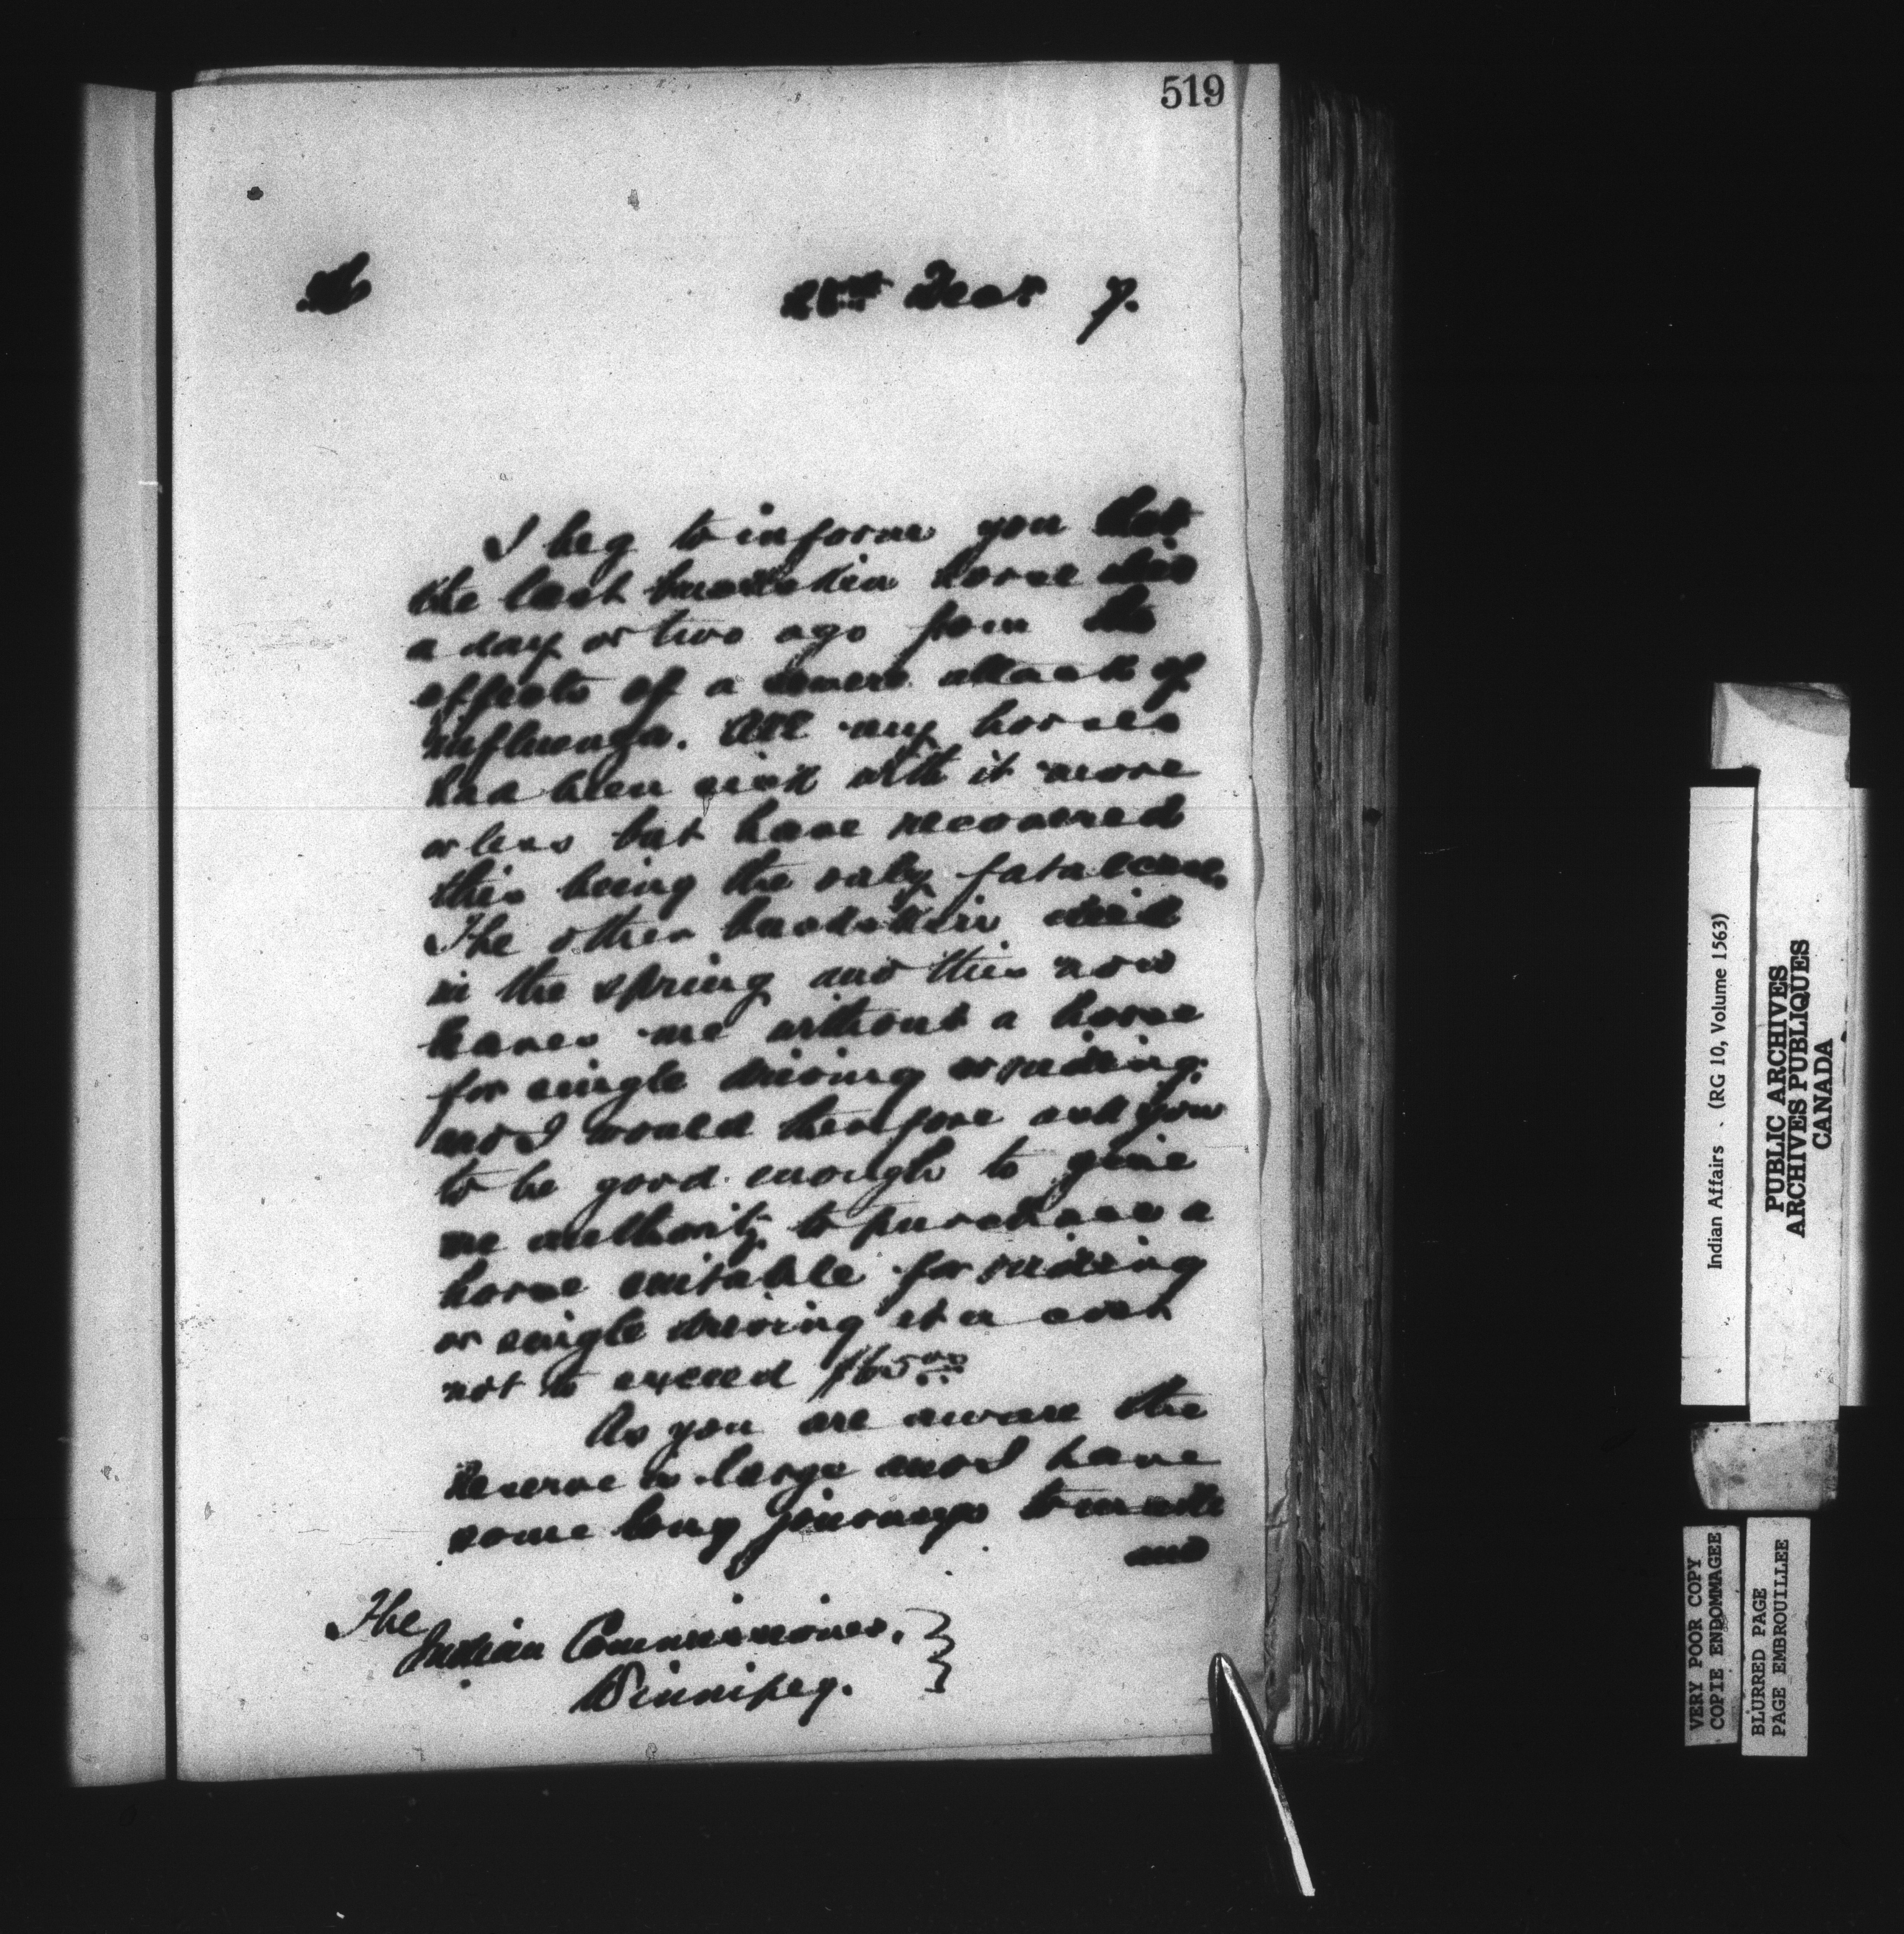 519
Decr 7.
I beg to inform you that
the last buckskin horse died
a day or two ago from the
effects of a severe attack of
influenza. All my horses
had been sick with it more
or less but have recovered
this being the only fatal case.
The other buckskin died
in the spring and this now
leaves me without a horse
for single driving or riding
and I would therefore ask you
to be good enough to give
me authority to purchase a
horse suitable for riding
or single driving at a cost
not to exceed
As you are aware the
Reserve is large and I have
some long journeys to make
and
The
Indian Commissioner,
Winnipeg.
Indian Affairs - (RG 10, Volume 1563)
PUBLIC ARCHIVES
ARCHIVES PUBLIQUES
CANADA
VERY POOR COPY
COPIE ENDOMMAGEE
BLURRED PAGE
PAGE EMBROUILLEE